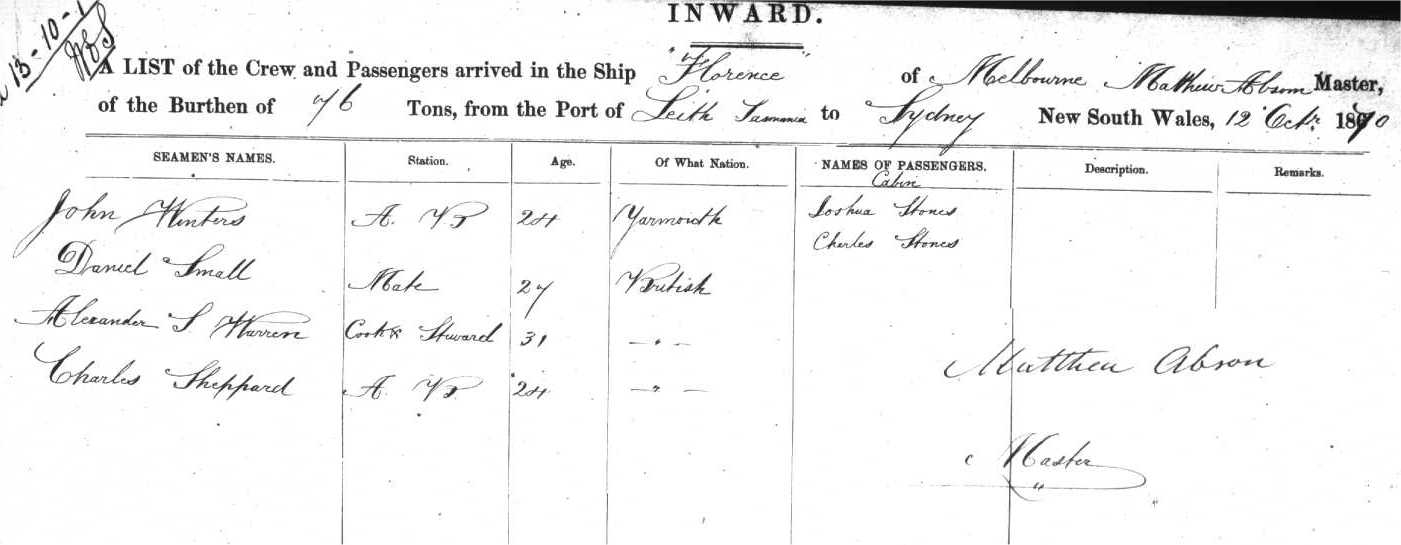 INWARD.
13-10-
A LIST of the Crew and Passengers arrived in the Ship "Florence" of Melbourne Mathew Absom Master,
of the Burthen of 76 Tons, from the Port of Leith Tasmania to Sydney New South Wales, 12 Octr. 1870
SEAMEN'S NAMES. Station. Age. Of What Nation. NAMES OF PASSENGERS. Description. Remarks.
Cabin
John Winters A. B 24 Yarmouth Joshua Stones
Charles Stones
Daniel Small Mate 27 British
Alexander S Warren Cook & Steward 31 - " -
Matthew Abson
Charles Sheppard A. B. 24 - " -
Master